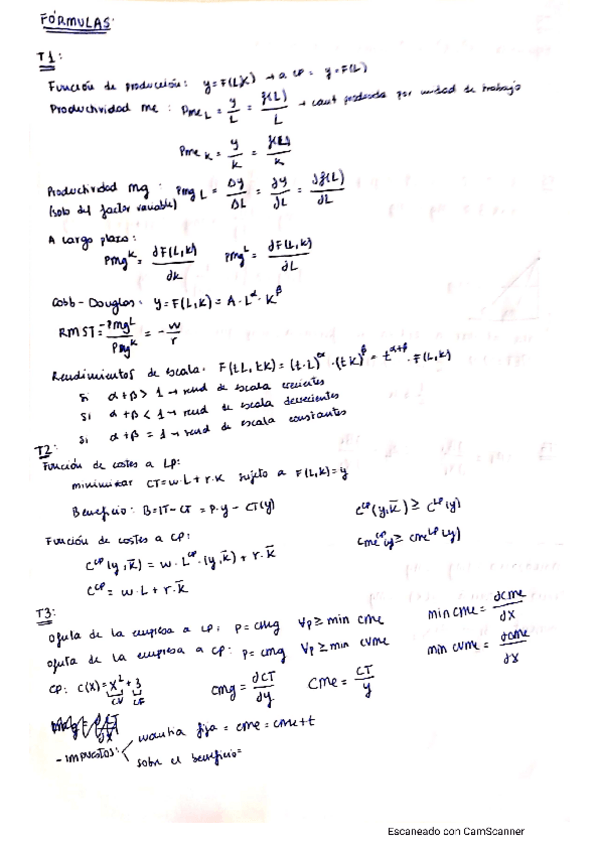 FÓRMULAS:
T1:
Función de producción: y=F(L,K) → a CP: y=F(L)
Productividad me: Pme_L = y/L = f(L)/L → cant producida por unidad de trabajo
Pme_K = y/K = f(L)/K
Productividad mg: Pmg_L = Δy/ΔL = ∂y/∂L = ∂f(L)/∂L
(solo del factor variable)
A largo plazo:
Pmg^K = ∂F(L,K)/∂K Pmg^L = ∂F(L,K)/∂L
Cobb-Douglas: y=F(L,K) = A·L^α·K^β
RMST = -Pmg^L/Pmg^K = -w/r
Rendimientos de escala: F(tL,tK) = (t·L)^α·(tK)^β = t^(α+β)·F(L,K)
Si α+β > 1 → rend de escala crecientes
Si α+β < 1 → rend de escala decrecientes
Si α+β = 1 → rend de escala constantes
T2:
Función de costes a LP:
minimizar CT=w·L+r·K sujeto a F(L,K)=y
Beneficio: B=IT-CT = P·y - CT(y) C^CP(y,K̄) ≥ C^LP(y)
Función de costes a CP: Cme^CP(y) ≥ Cme^LP(y)
C^CP(y,K̄) = w·L^CP·(y,K̄) + r·K̄
C^CP = w·L + r·K̄
T3:
Oferta de la empresa a LP: P=cmg ∀p ≥ min cme min cme = ∂cme/∂x
Oferta de la empresa a CP: P=cmg ∀p ≥ min cvme min cvme = ∂cvme/∂x
CP: C(X) = x²+3 cmg = ∂CT/∂y Cme = CT/y
CV CF
-IMPUESTOS: cuantía fija = cme = cme+t
sobre el beneficio=
Escaneado con CamScanner